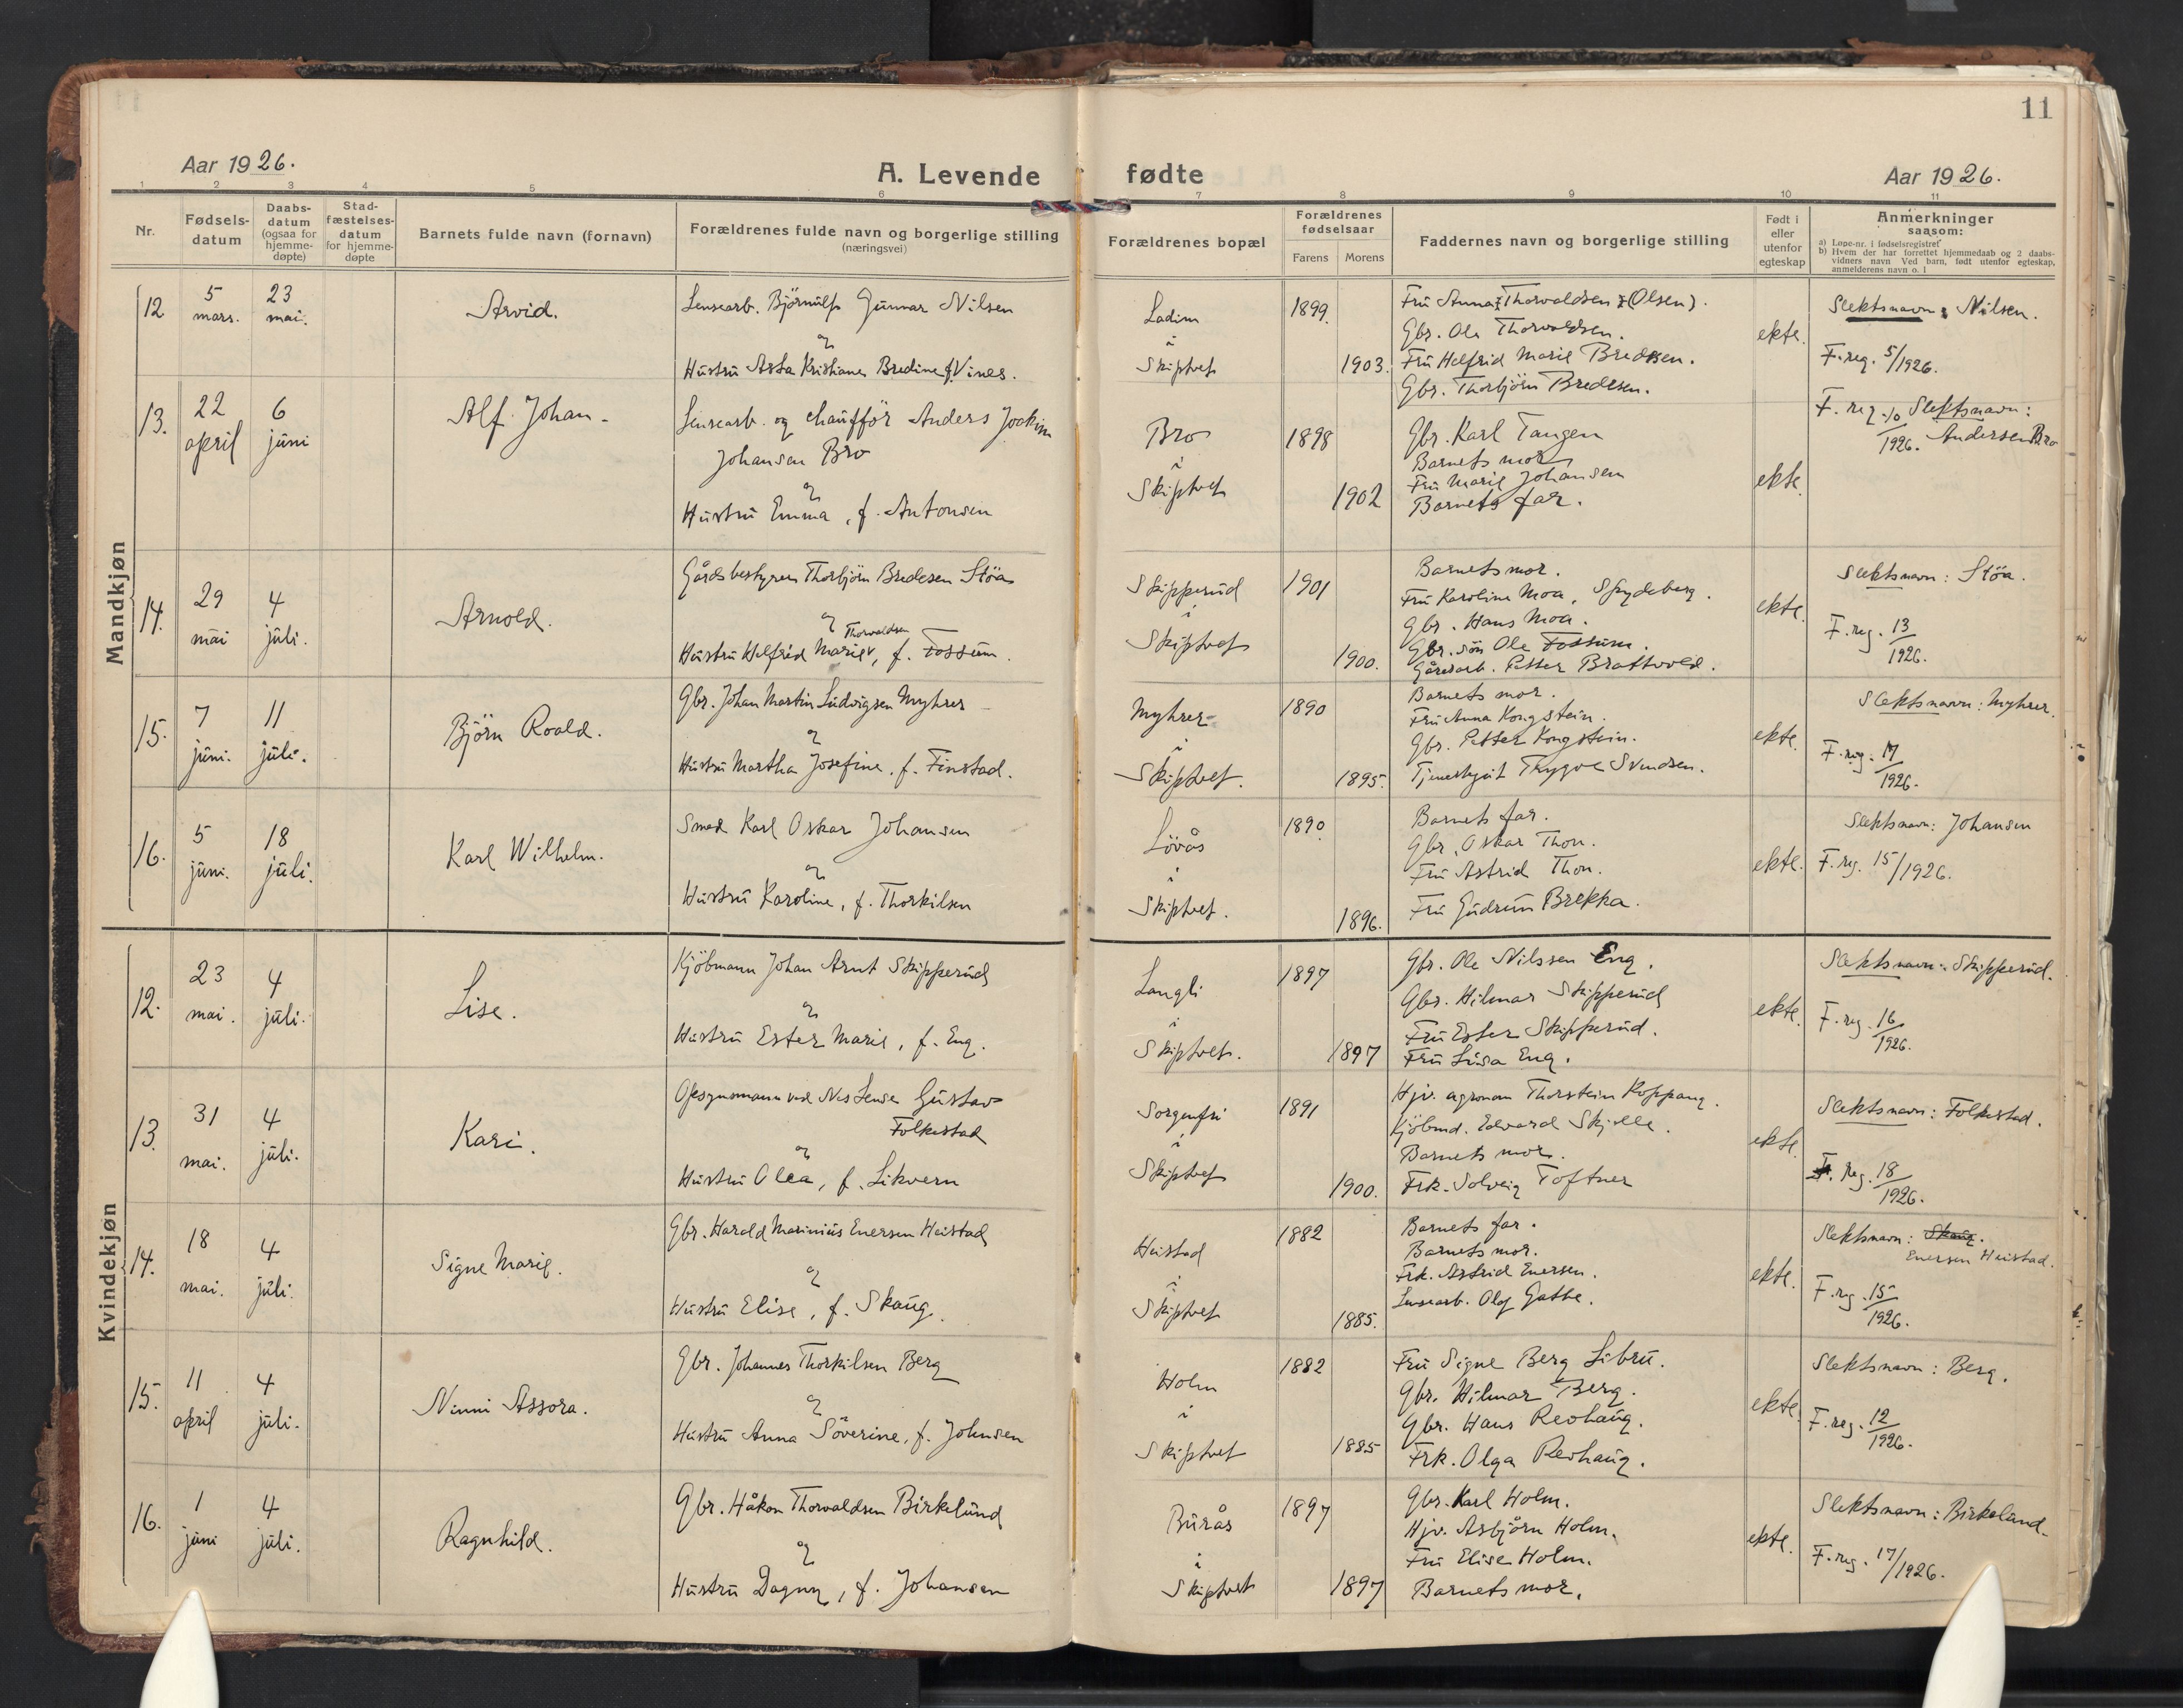 11
Aar 1926.
A. Levende fødte
Aar 1926.
1 2 3 4 5 6 7 8 9 10 11
Nr.
Fødsels-datum
Daabs-datum (ogsaa for hjemme-døpte)
Stad-fæstelses-datum for hjemme-døpte
Barnets fulde navn (fornavn)
Forældrenes fulde navn og borgerlige stilling (næringsvei)
Forældrenes bopæl
Forældrenes fødselsaar
Farens Morens
Faddernes navn og borgerlige stilling
Født i eller utenfor egteskap
Anmerkninger saasom:
a) Løpe-nr. i fødselsregistret
b) Hvem der har forrettet hjemmedaab og 2 daabs-vidners navn Ved barn, født utenfor egteskap, anmelderens navn o. l
Mandkjøn
12 5 mars. 23 mai. Arvid.
Lensearb. Björnulf Gunnar Nilsen
og
Hustru Asta Kristiane Bredine f. Vines.
Ladim i Skiptvet 1899. 1903.
Fru Anna Thorvaldsen (Olsen).
Gbr. Ole Thorvaldsen.
Fru Helfrid Marie Bredesen.
Gbr. Thorbjörn Bredesen.
ekte.
Slektsnavn: Nilsen.
F. reg. 5/1926.
13. 22 april 6 juni Alf Johan
Lensearb. og chaufför Anders Joakim
Johansen Bro
og
Hustru Emma, f. Antonsen
Bro i Skiptvet 1898 1902
Gbr. Karl Tangen
Barnets mor
Fru Marie Johansen
Barnets far.
ekte.
F. reg. 10/1926. Slektsnavn:
Andersen Bro
14. 29 mai 4 juli. Arnold.
Gårdsbestyrer Thorbjörn Bredesen Stöa
og
Thorvaldsen
Hustru Helfrid Marie, f. Fossum.
Skipperud i Skiptvet 1901 1900.
Barnets mor.
Fru Karoline Moa, Spydeberg.
Gbr. Hans Moa.
Gbr. sön Ole Fossum.
Gårdsarb. Petter Brattvold.
ekte
Slektsnavn: Stöa.
F. reg. 13/1926.
15. 7 juni. 11 juli. Björn Roald.
Gbr. Johan Martin Ludvigsen Myhrer
og
Hustru Martha Josefine, f. Finstad.
Myhrer i Skiptvet. 1890 1895.
Barnets mor.
Fru Anna Kongstein.
Gbr. Petter Kongstein.
Tjenestegut Trygve Svendsen.
ekte.
Slektsnavn: Myhrer.
F. reg. 14/1926.
16. 5 juni. 18 juli. Karl Wilhelm.
Smed Karl Oskar Johansen
og
Hustru Karoline, f. Thorkilsen
Lövås i Skiptvet. 1890. 1896.
Barnets far.
Gbr. Oskar Thon.
Fru Astrid Thon.
Fru Gudrun Brekka.
ekte.
Slektsnavn: Johansen
F. reg. 15/1926.
Kvindekjøn
12. 23 mai. 4 juli. Lise.
Kjöbmann Johan Arnt Skipperud
og
Hustru Ester Marie, f. Eng.
Langli i Skiptvet. 1897 1897
Gbr. Ole Nilssen Eng.
Gbr. Hilmar Skipperud
Fru Ester Skipperud.
Fru Lisa Eng.
ekte.
Slektsnavn: Skipperud.
F. reg. 16/1926.
13. 31 mai. 4 juli. Kari.
Opsynsmann ved Nes Lense Gustav
Folkestad
og
Hustru Olea, f. Likvern
Sorgenfri i Skiptvet 1891 1900.
Hjv. agronom Thorstein Koppang.
Kjöbmd. Edvard Skjelle.
Barnets mor.
Frk. Solveig Toftner
ekte.
Slektsnavn: Folkestad.
F. reg. 18/1926.
14. 18 mai. 4 juli. Signe Marie.
Gbr. Harald Marinius Enersen Heistad
og
Hustru Elise, f. Skaug.
Heistad i Skiptvet 1882 1885.
Barnets far.
Barnets mor.
Frk. Astrid Enersen.
Lensearb. Olaf Gatbe.
ekte.
Slektsnavn: Skaug.
Enersen Heistad.
F. reg. 15/1926.
15. 11 april 4 juli. Ninni Assora.
Gbr. Johannes Thorkilsen Berg
og
Hustru Anna Söverine, f. Johnsen
Holm i Skiptvet 1882 1885
Fru Signe Berg Libru.
Gbr. Hilmar Berg.
Gbr. Hans Revhaug.
Frk. Olga Revhaug.
ekte.
Slektsnavn: Berg.
F. reg. 12/1926.
16. 1 juni 4 juli. Ragnhild.
Gbr. Håkon Thorvaldsen Birkelund
og
Hustru Dagny, f. Johansen
Burås i Skiptvet 1897 1897
Gbr. Karl Holm.
Hjv. Asbjörn Holm.
Fru Elise Holm.
Barnets mor.
ekte.
Slektsnavn: Birkelund
F. reg. 17/1926.